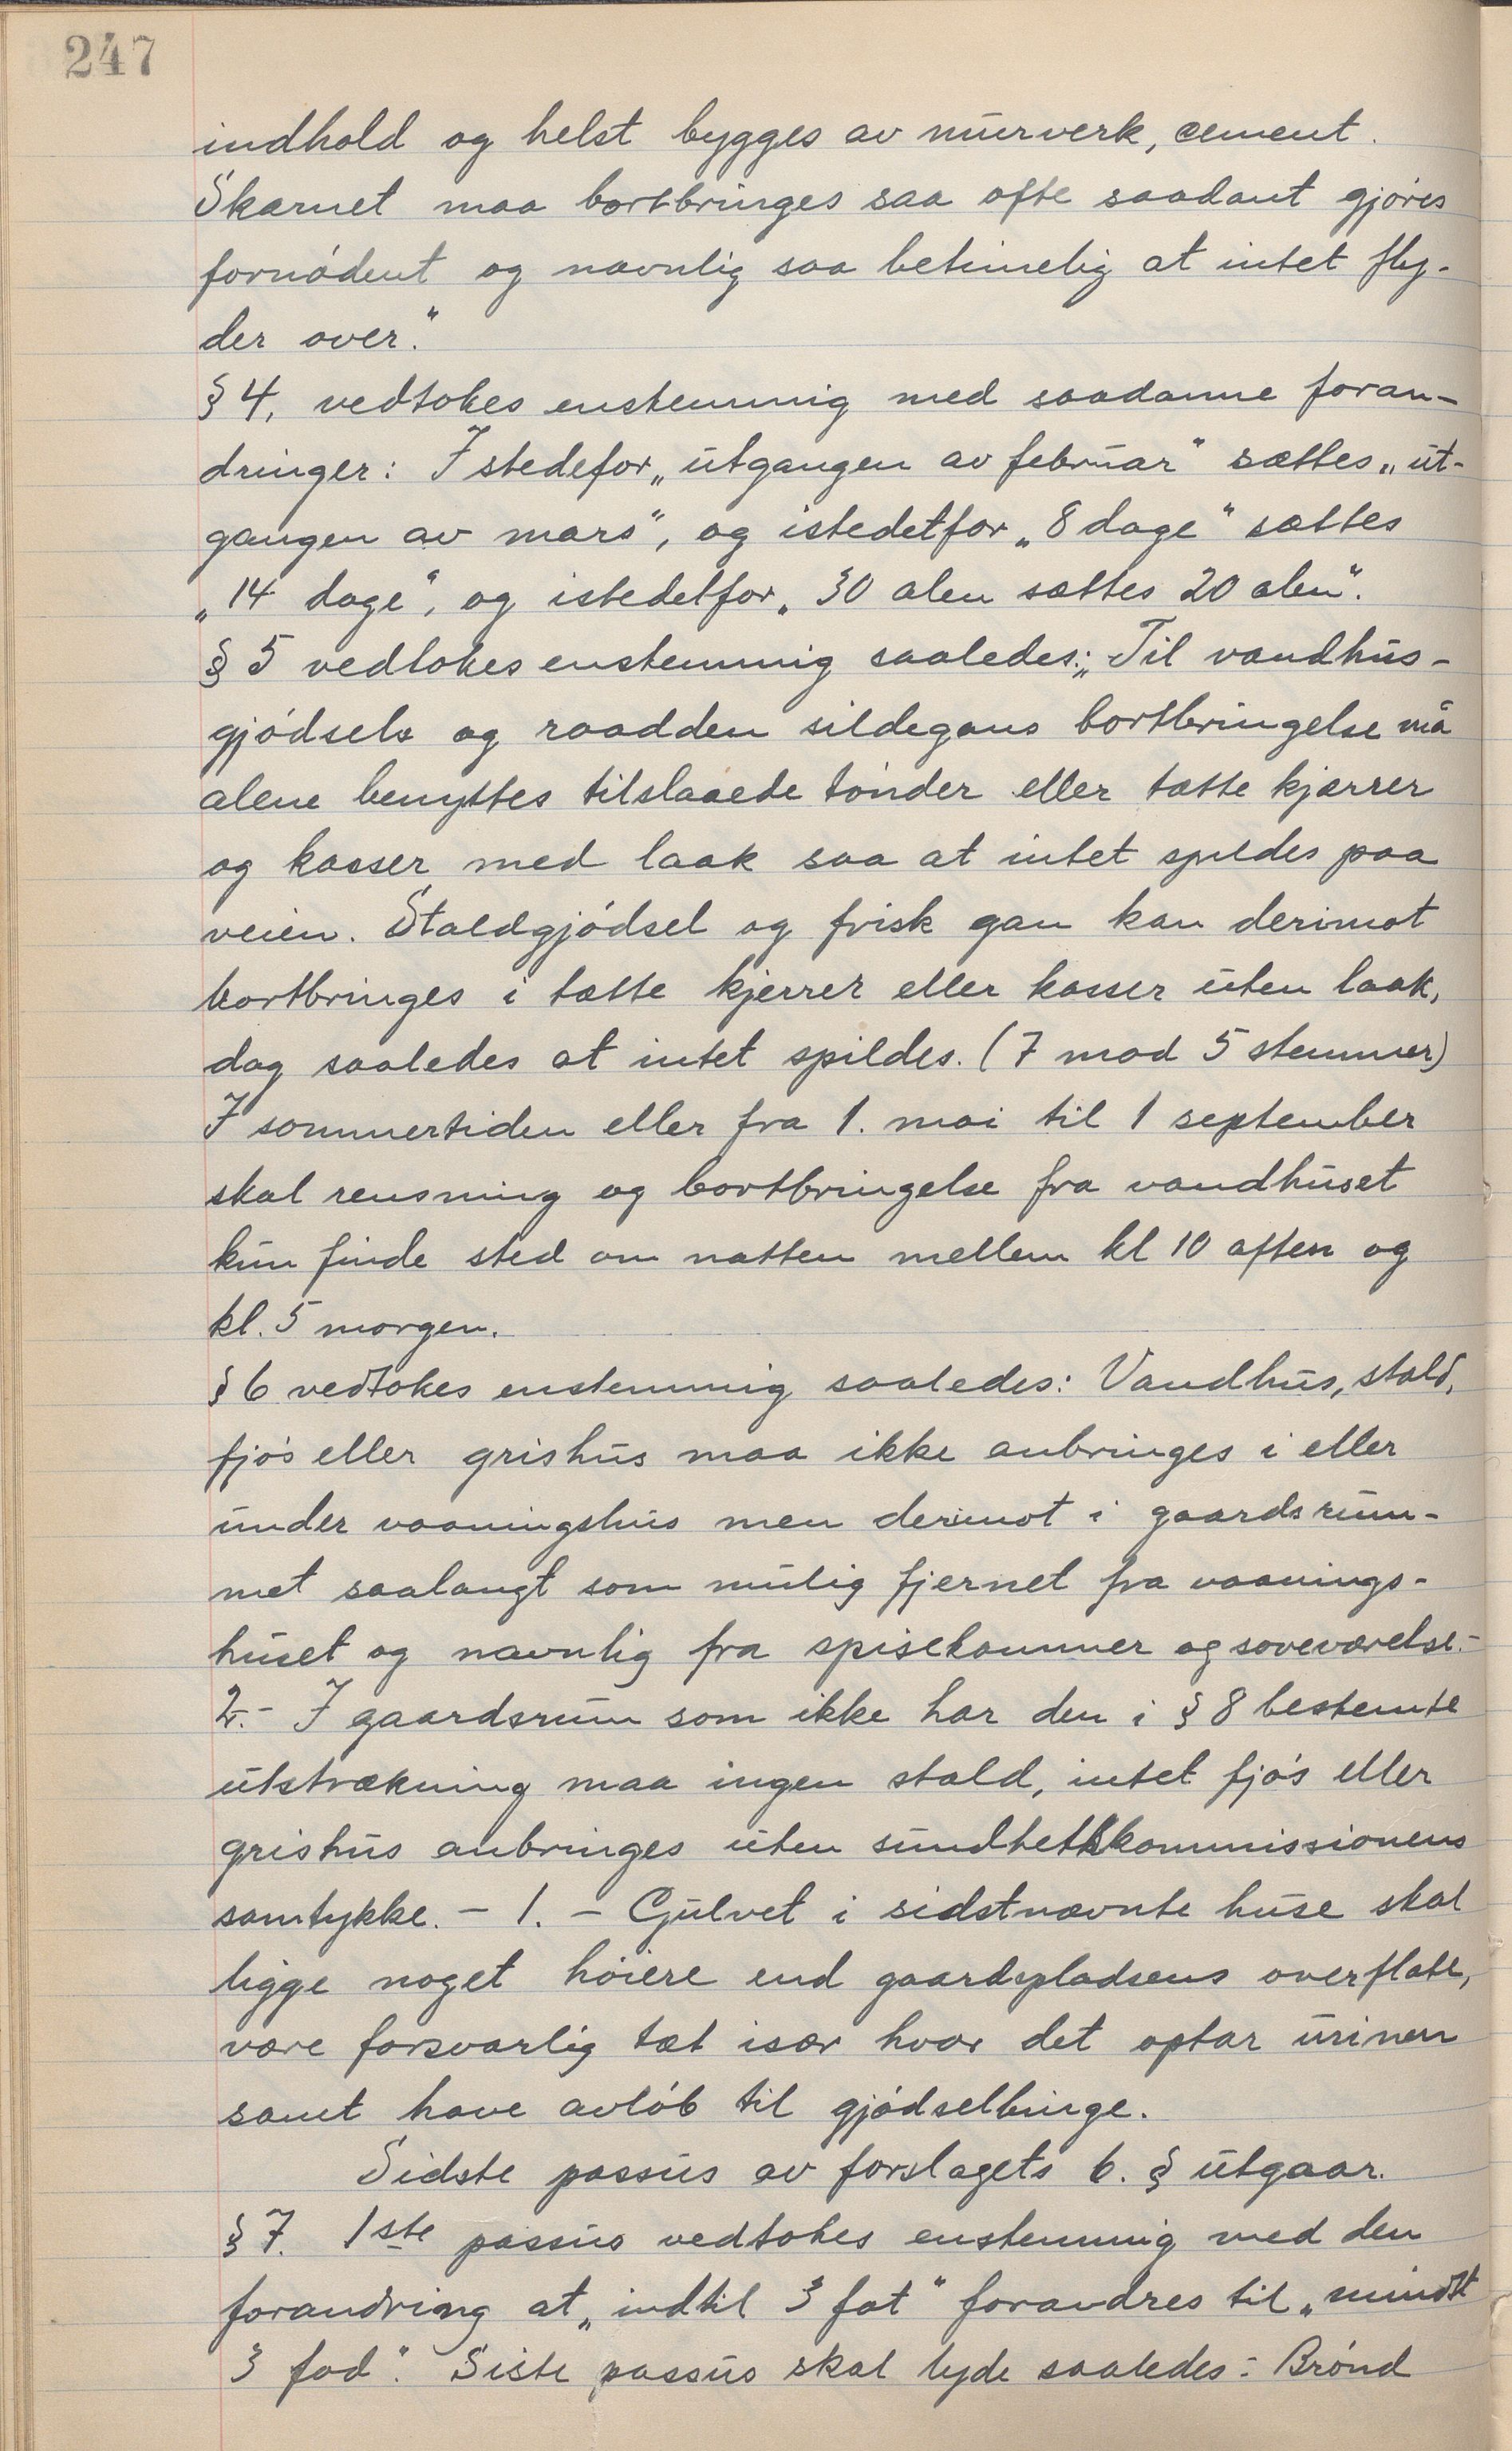 247
indhold og helst bygges av murverk, cement.
Skarnet maa bortbringes saa ofte saadant gjöres
fornödent og navnlig saa betimelig at intet fly-
der over."
§ 4, vedtokes enstemmig med saadanne foran-
dringer: I stedefor „utgangen av februar" sættes „ut-
gangen av mars", og istedetfor „8 dage" sættes
„14 dage", og istedetfor „30 alen sættes 20 alen".
§ 5 vedtokes enstemmig saaledes: „Til vandhus-
gjödsels og raadden sildegans bortbringelse må
alene benyttes tilslaaede tönder eller tætte kjærrer
og kasser med laak saa at intet spildes paa
veien. Staldgjödsel og frisk gan kan derimot
bortbringes i tætte kjerrer eller kasser uten laak,
dog saaledes at intet spildes. (7 mod 5 stemmer)
I sommertiden eller fra 1. mai til 1 september
skal rensning og bortbringelse fra vandhuset
kun finde sted om natten mellem kl 10 aften og
kl. 5 morgen.
§ 6 vedtokes enstemmig saaledes: Vandhus, stald,
fjös eller grishus maa ikke anbringes i eller
under vaaningshus men derimot i gaardsrum-
met saalangt som mulig fjernet fra vaanings-
huset og navnlig fra spisekammer og soveværelse.-
2.- I gaardsrum som ikke har den i § 8 bestemte
utstrækning maa ingen stald, intet fjös eller
grishus anbringes uten sundhetskommissionens
samtykke. - 1. - Gulvet i sidstnævnte huse skal
ligge noget höiere end gaardspladsens overflate,
være forsvarlig tæt især hvor det optar urinen
samt have avlöb til gjödselbinge.
Sidste passus av forslagets 6. § utgaar.
§ 7. 1ste passus vedtokes enstemmig med den
forandring at „indtil 3 fot" forandres til „mindst
3 fod". Siste passus skal lyde saaledes: Brönd